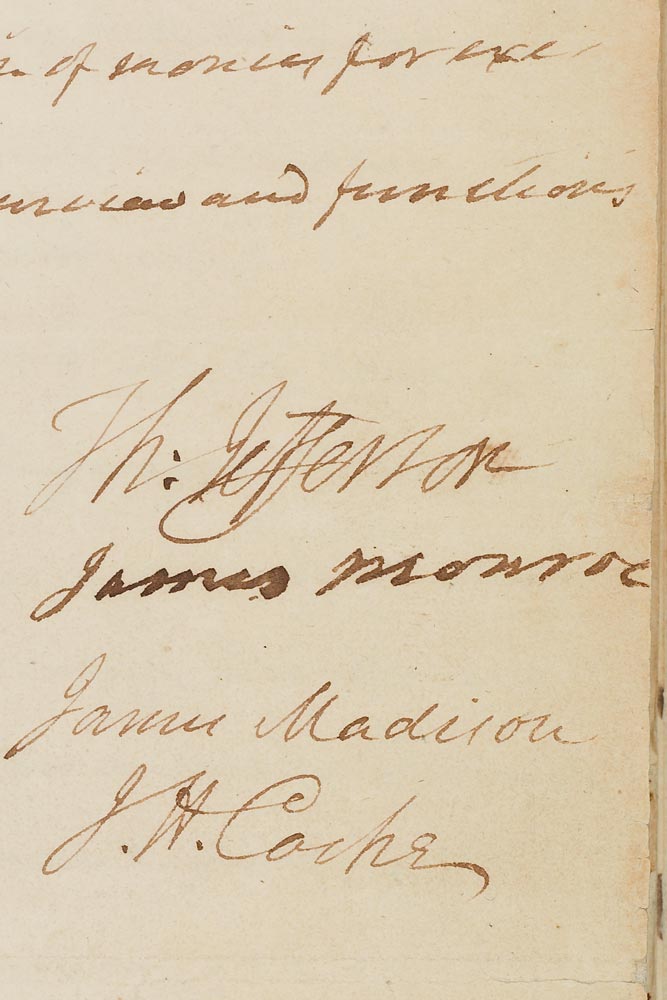 of monies for exe-
and functions
Th: Jefferson
James Monroe
James Madison
J. H. Cocke